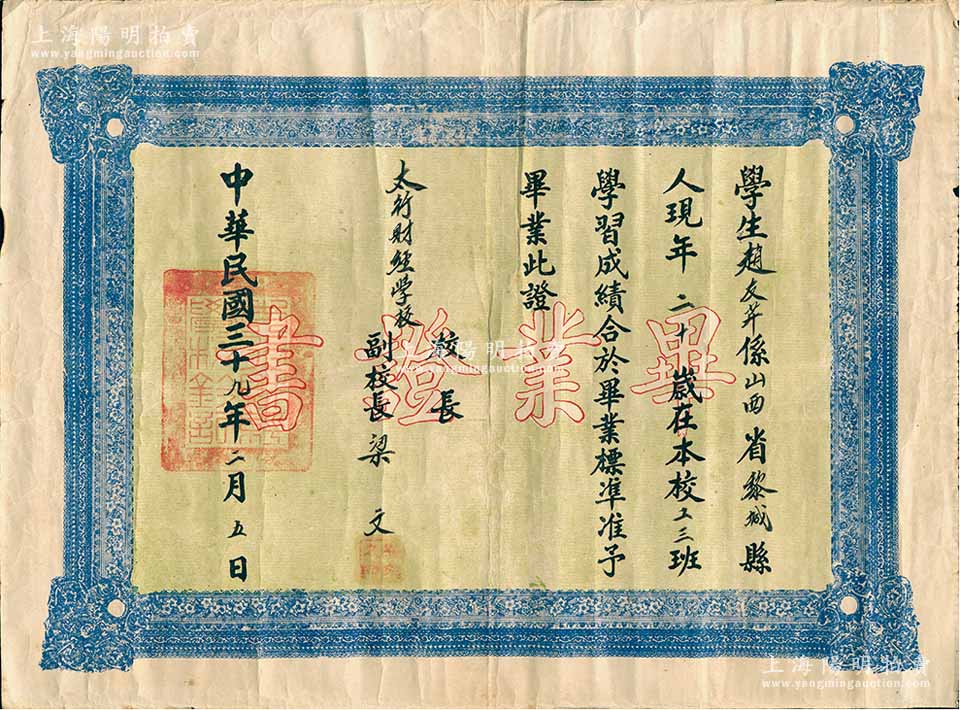 上海陽明拍賣
www.yangmingauction.com
學生趙文𦍌係山西省黎城縣
人現年二十歲在本校工三班
學習成績合於畢業標準准予
畢業此證
太行財經學校
校長
副校長梁文
中華民國三十九年二月五日
畢業證書
上海陽明拍賣
www.yangmingauction.com
上海陽明拍賣
www.yangmingauction.com